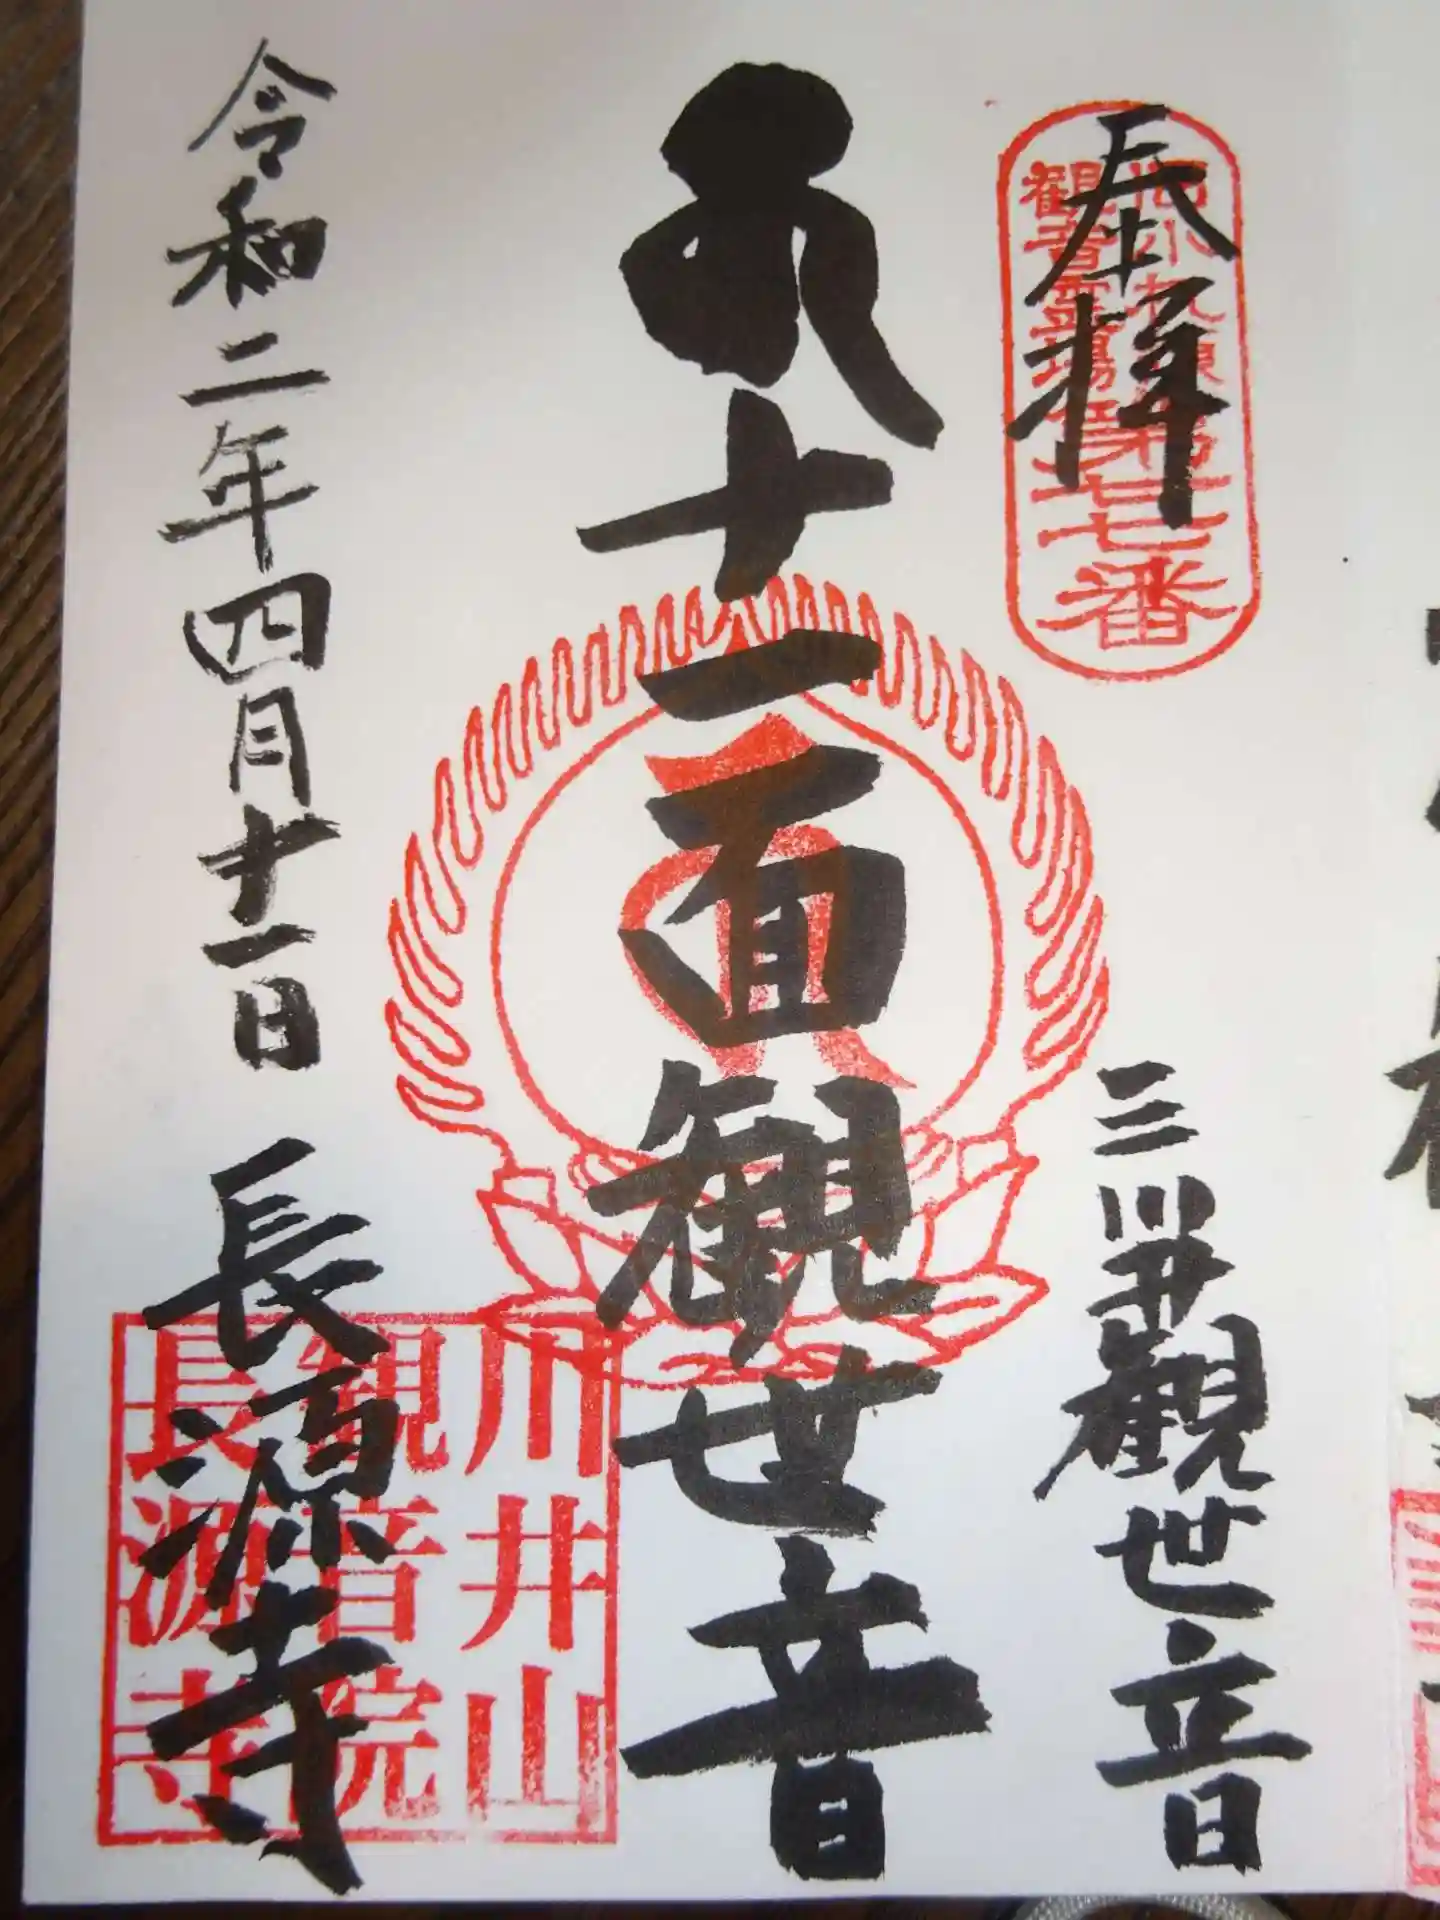 奉拝
旧小机領
観音霊場
第廿七番
三川井観世音
十一面観世音
令和二年四月十一日
長源寺
川井山
観音院
長源寺